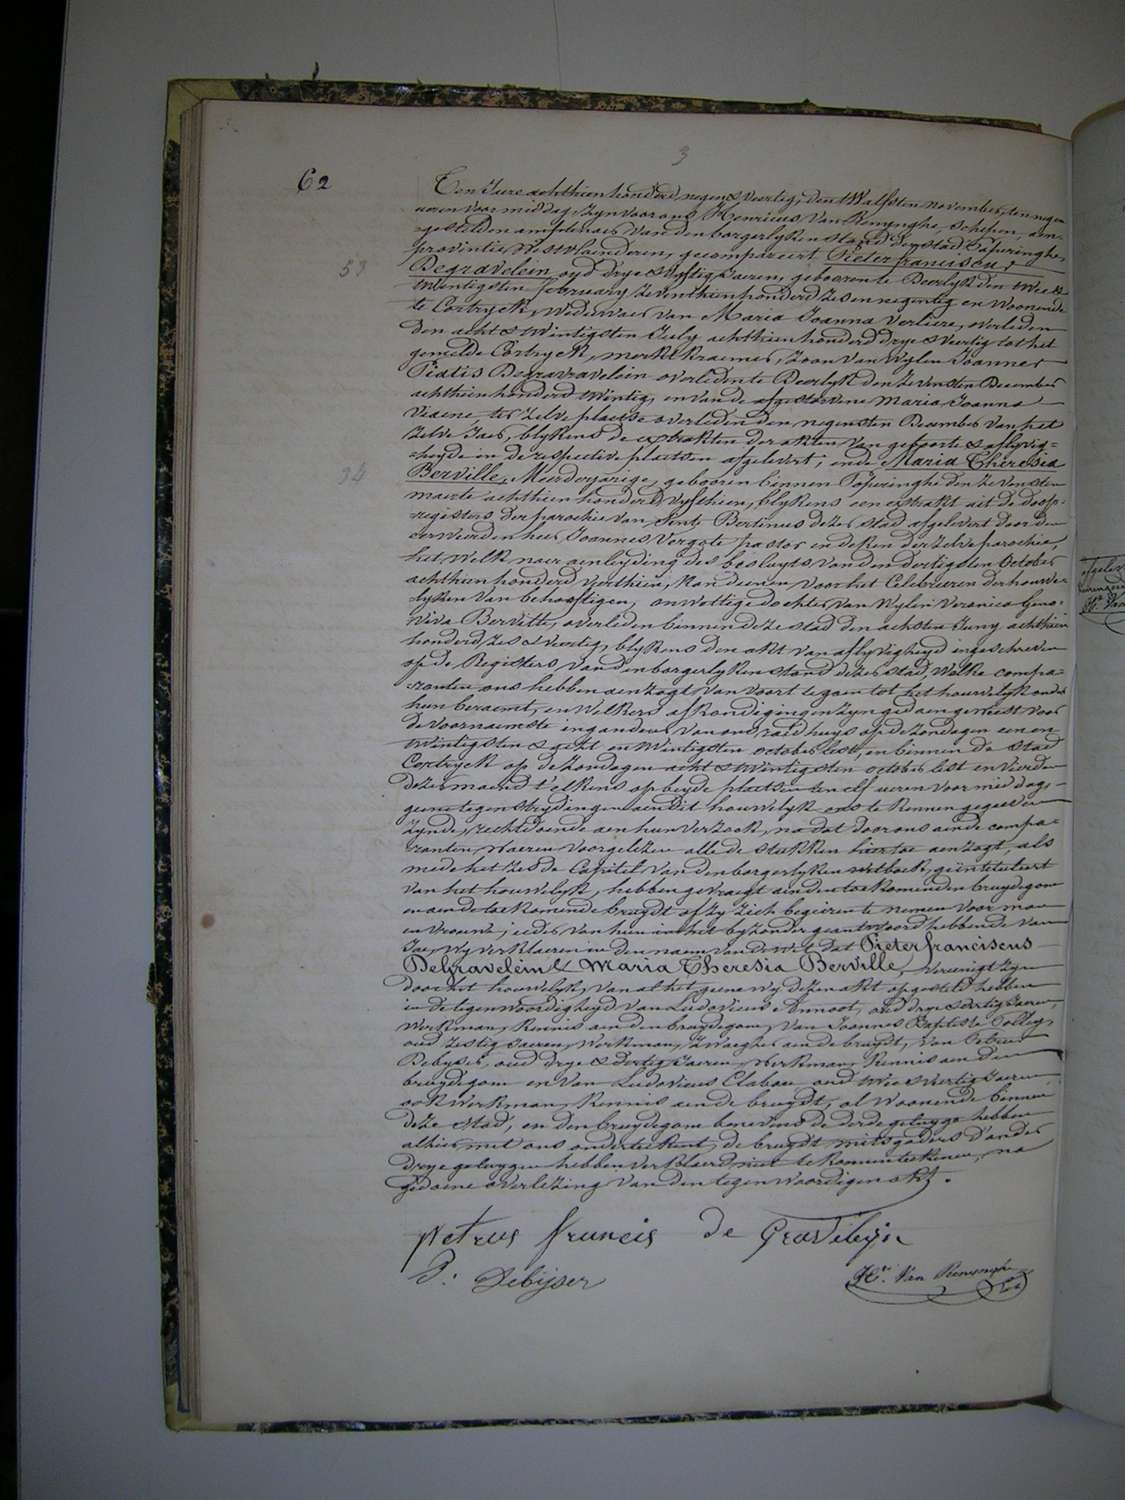 3
62
Ten Jare achthien honderd negen & veertig, den twalfsten november, ten negen
ueren voormiddag zyn voor ons Henricus Van Renynghe, schepen, aen-
gestelden amptenaer van den borgerlyken stand der stad Poperinghe,
provintie Westvlaenderen, gecompareert Pieter franciscus
53
Degravelein oud drye & vyftig Jaeren, geboren te Deerlyk den twee &
twintigsten february zeventhien honderd zes en negentig en woonende
te Cortryck, weduwaer van Maria Joanna Verliere, overleden
den acht & twintigsten July achthien honderd drye & veertig tot het
gemelde Cortryck, merktkraemer, zoon van wylen Joannes
Piatis Degravelein overleden te Deerlyk den zevensten December
achthien honderd twintig, en van de afgestorvene Maria Joanna
Viaene, ter zelve plaetse overleden den negensten December van het
zelve Jaer, blykens de extrakten der akten van geboorte & aflyvig-
heyde in de respective plaetsen afgelevert; ende Maria Theresia
34
Berville, Meerderjarige, geboren binnen Poperinghe den zevensten
maerte achthien honderd vyfthien, blykens een extrakt uit de doop-
registers der parochie van Sint Bertinus dezer stad afgelevert door den
eerweirden heer Joannes Vergote pastor en deken der zelve parochie,
het welk naer aenleyding des besluyts van den dertigsten October
achthien honderd veerthien, kan dienen voor het Celebreren der houwe-
lyken van behoeftigen, onwettige dochter van wylen Veronica Geno-
viva Berville, overleden binnen deze stad den achsten Juny achthien
honderd zes & veertig, blykens den akt van aflyvigheyd ingeschreven
op de Registers van den borgerlyken stand dezer stad, Welke compa-
ranten ons hebben aenzogt van voort te gaen tot het houwelyk onder
hun beraemt, en welkers afkondigingen zyn gedaen geweest voor
de voornaemste ingandeur van ons raedhuys op de zondagen een en
twintigsten & acht en twintigsten october lest, en binnen de stad
Cortryck op de zondagen acht & twintigsten october lest en vierden
dezer maend t'elkens op beyde plaetsen ten elf ueren voormiddag,
geene tegenstrydingen aen dit houwelyk ons te kennen gegeeven
zynde, rechtdoende aen hun verzoek, na dat door ons aen de compa-
ranten waeren voorgelezen alle de stukken hiertoe aenzogt, als
mede het zesde Capitel van den borgerlyken wetboek, geïntituleert
van het houwelyk, hebben gevraegt aen den toekomenden bruydegom
en aen de toekomende bruydt of zy zich begeiren te nemen voor man
en vrouw; ieder van hun in het byzonder geantwoord hebbende van
Jae, Wy verklaeren in den naem van de wet dat Pieter franciscus
Degravelein & Maria Theresia Berville, vereenigt zyn
door het houwelyk, van al het geene wy dezen akt opgesteld hebben
in de tegenwoordigheyd van Ludovicus Annoot, oud drye & dertig Jaeren,
werkman, kennis aen den bruydegom, van Joannes Baptiste Tolley,
oud zestig Jaeren, werkman, zwaegher aen de bruydt, van Petrus
Debyser, oud drye & dertig Jaeren, werkman, kennis aen den
bruydegom en van Ludovicus Clabau oud twee & veertig Jaeren
ook werkman, kennis aen de bruydt, al woonende binnen
deze stad, en den bruydegom benevens de derde getuyge hebben
alhier met ons onderteekent, de bruydt mitsgaders d'ander
drye getuygen hebben verklaerd niet te konnen teekenen, na
gedaene overlezing van den tegenwoordigen akt.
petrus francis de Graveleijn
P: Debijser
He. Van Renynghe